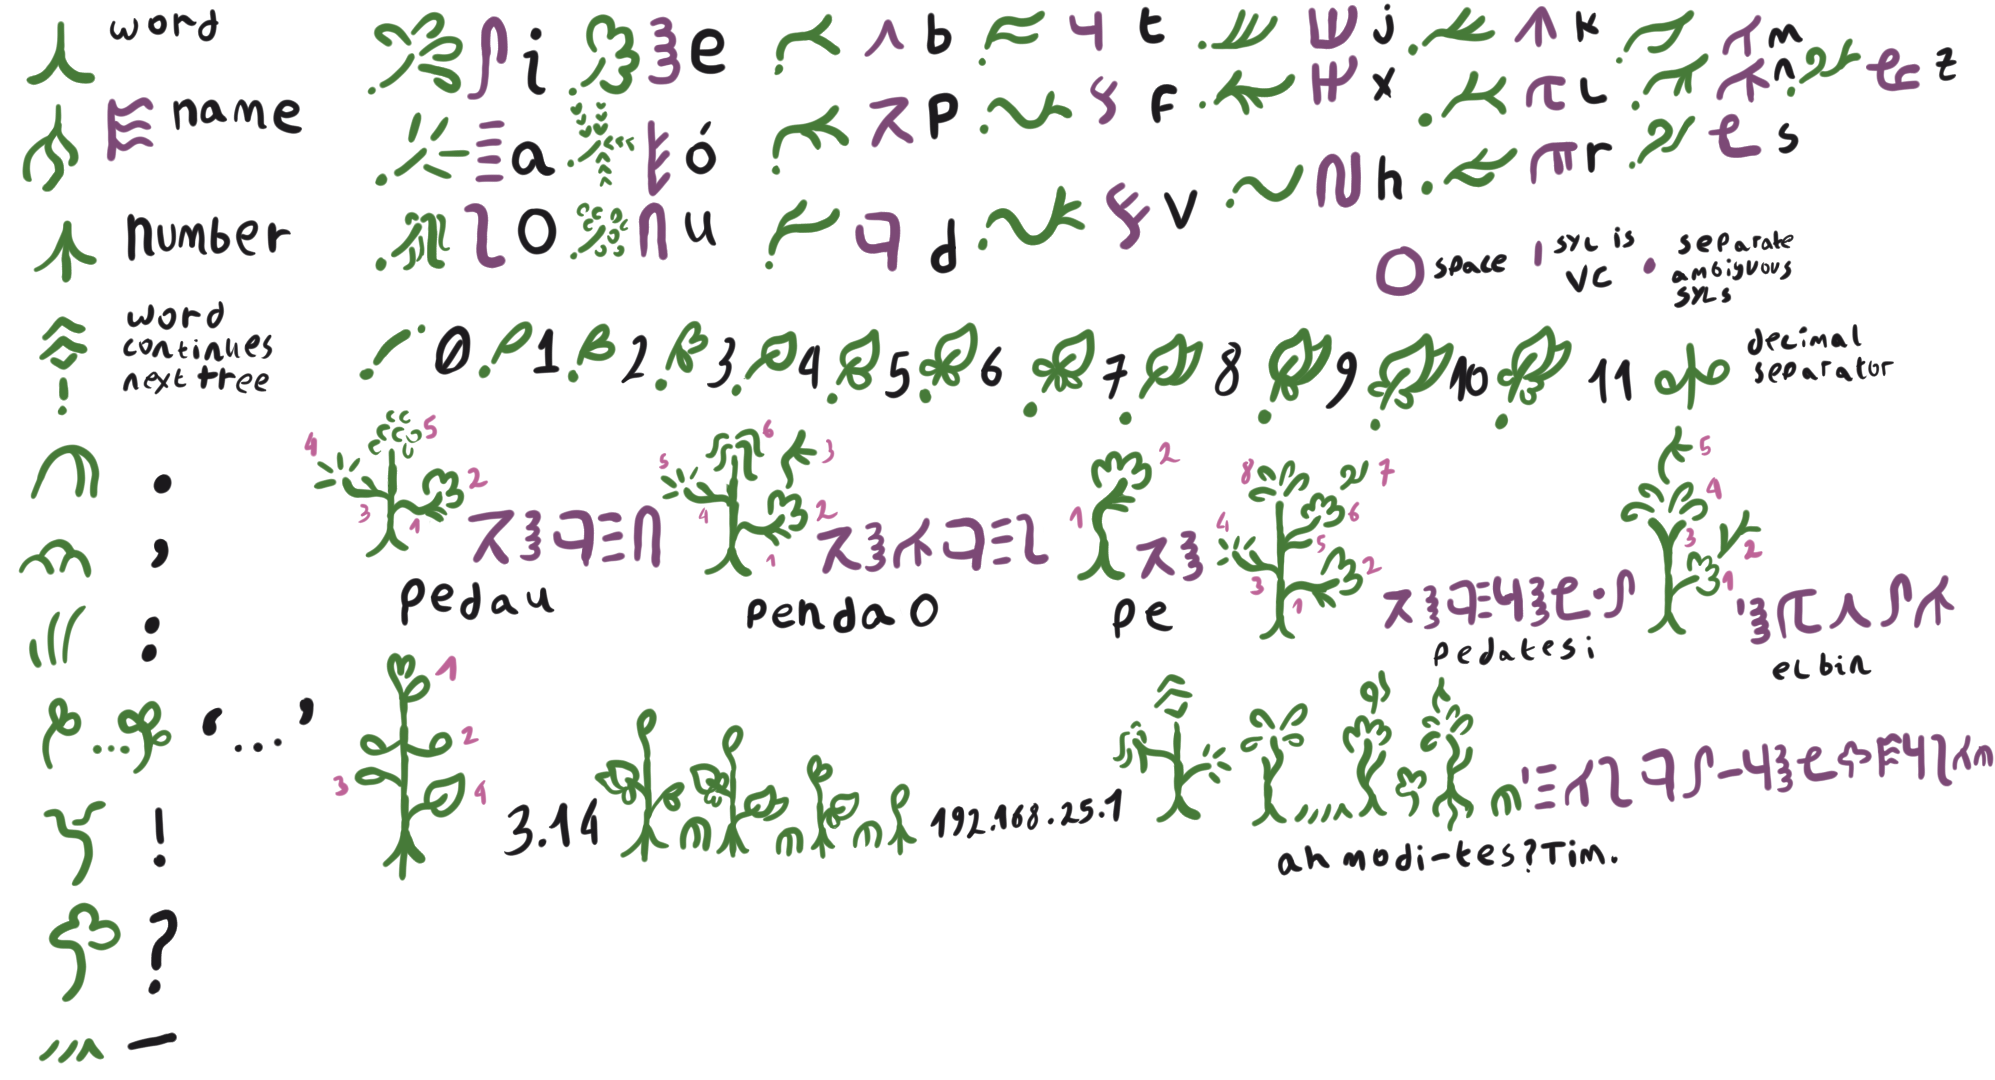 word
i e b t j k m
z
name
a ó p f x L n
o u d v h r s
number
space syL is VC separate ambiguous syLs
word continues next tree
0 1 2 3 4 5 6 7 8 9 10 11 decimal separator
.
4 5 2 3 1
5 6 3 2 4 1
2 1
8 7 4 6 5 3 2 1
5 4 3 2 1
,
pedau
pendao
pe
pedatesi
eLbin
:
1 2 3 4
‘...’
3.14
192.168.25.1
an modi-tes?Tim.
!
?
-